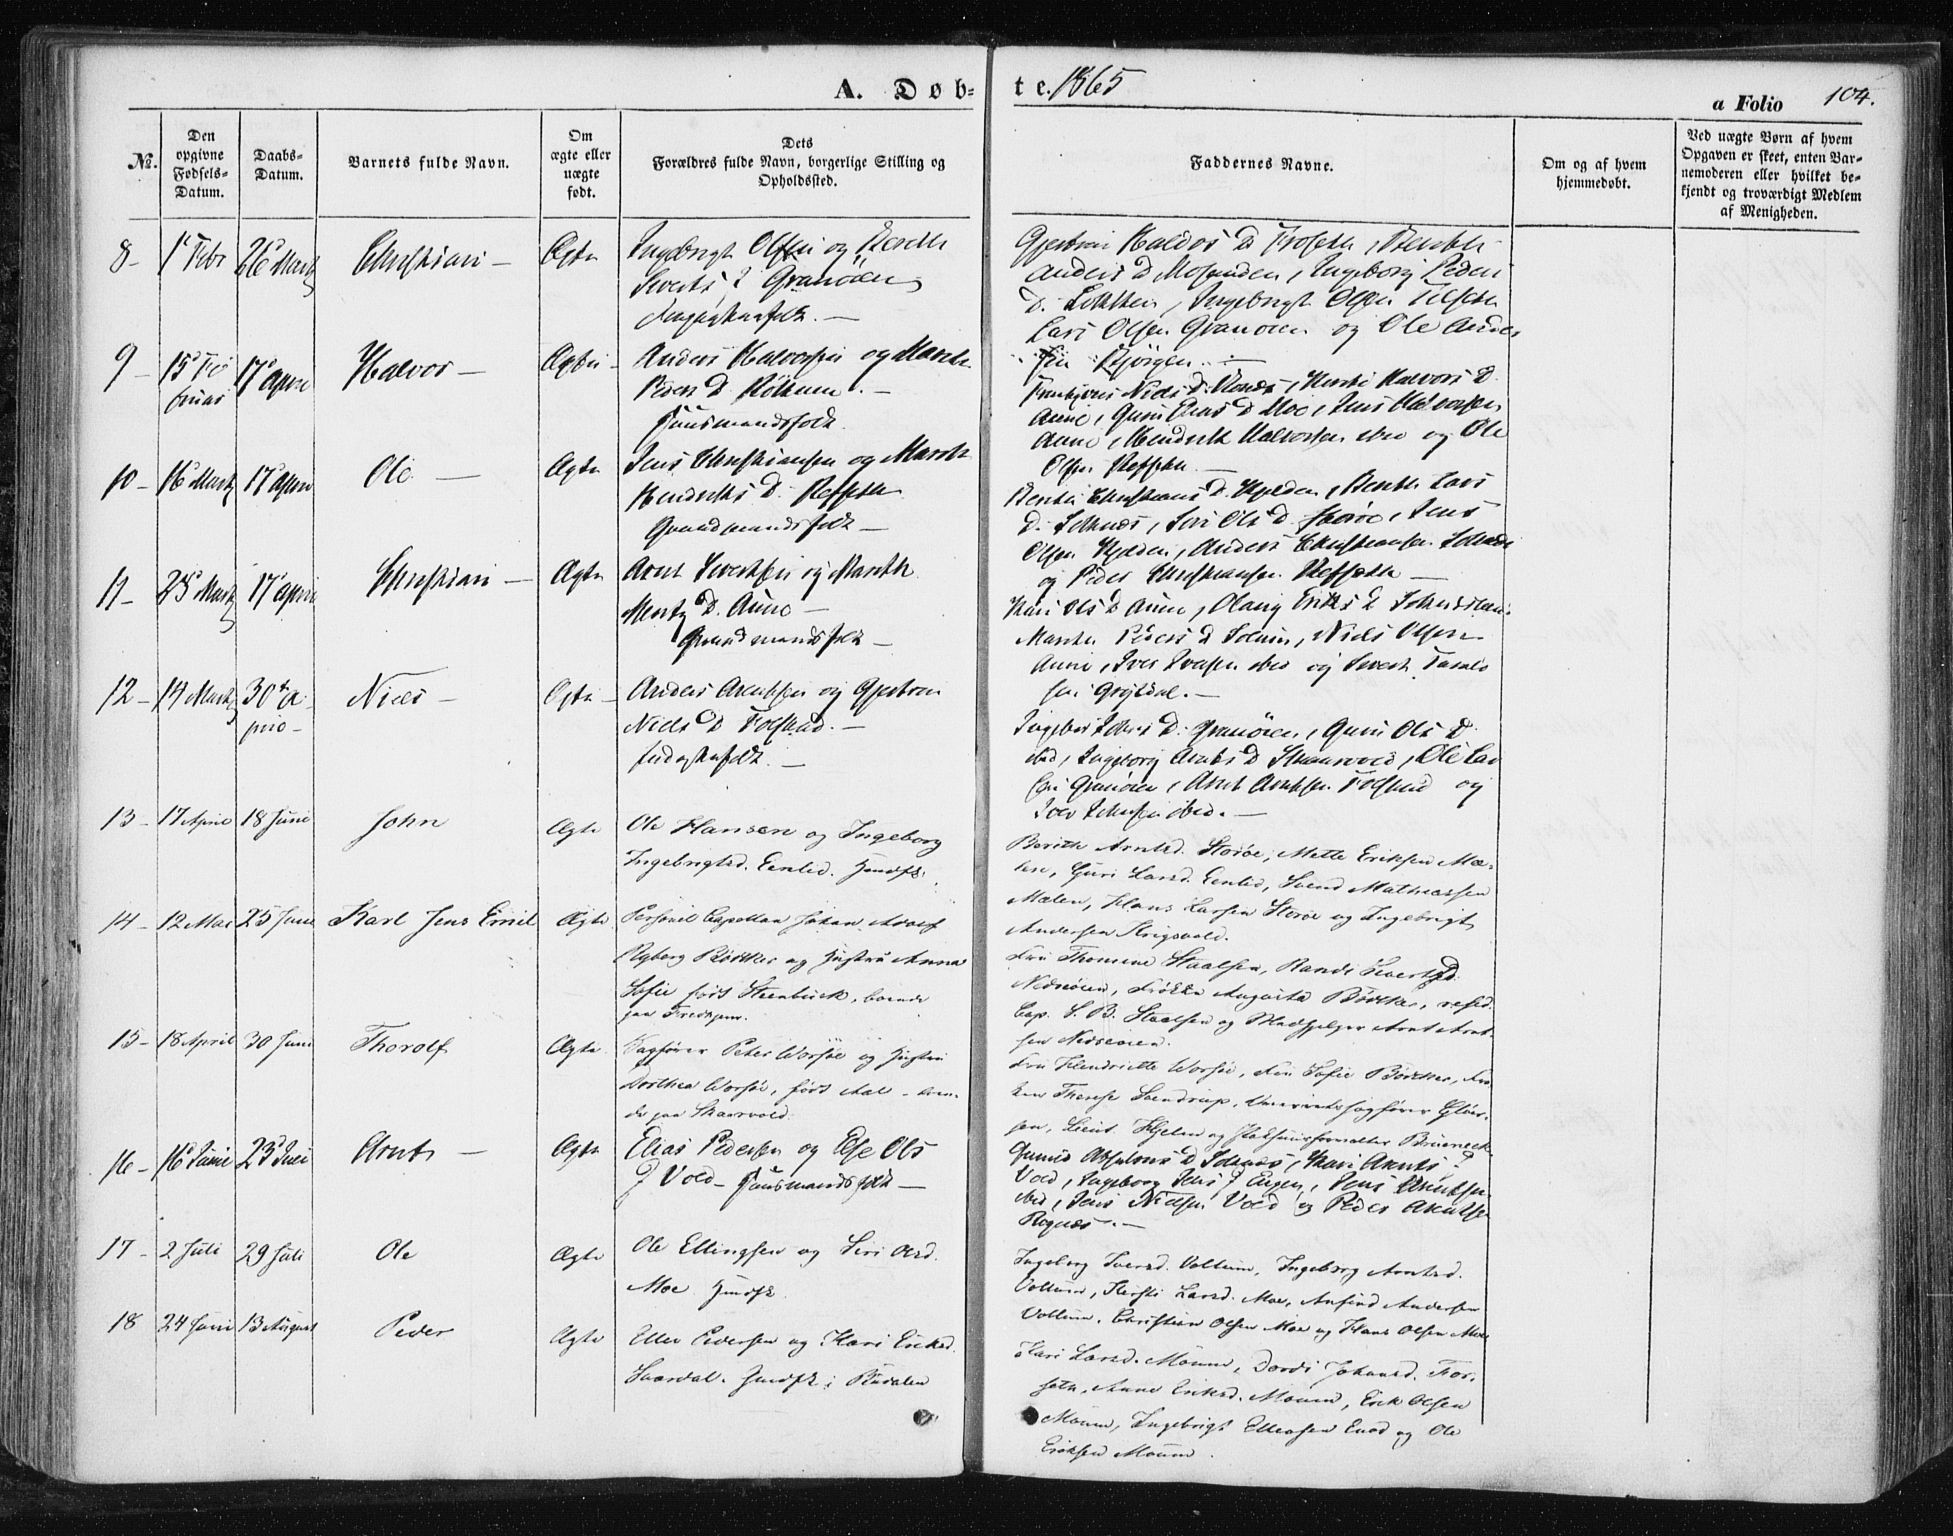 A. Døb-
te. 1865
a Folio 104.
No.
Den opgivne Fødsels-Datum.
Daabs-Datum.
Barnets fulde Navn.
Om ægte eller uægte født.
Dets Forældres fulde Navn, borgerlige Stilling og Opholdssted.
Faddernes Navne.
Om og af hvem hjemmedøbt.
Ved uægte Børn af hvem Opgaven er skeet, enten Barnemoderen eller hvilket bekjendt og troværdigt Medlem af Menigheden.
8- 1 Febr 26 Martz Christian - Ægte
Ingebrigt Olsen og Berith
Siverts D Granöien
Gjertrui Haldos D Froseth, Berith
Anders D Mosanden, Ingeborg Peders
D. Lohlien, Ingebrigt Olsen
Lars Olsen Granöien og Ole Anders
sen Bjørgen -
9- 15 Februar 17 April Halvor - Ægte
Anders Halvorsen og Marith
Peders D
Huusmandsfolk
Niels D. , Kirsti Halvors D
Aune, Guru D Moe, Jens Halvorsen
Aune, Hendrik Halvorsen ibid og Ole
Olsen Refseth -
10- 16 Martz 17 April Ole - Ægte
Jens Christiansen og Marith
Hendriks D. Refseth
Gaardmandsfolk -
Berith Christians D. Kjelden, Berith Lars
D. Solknæs, Siri Ols D. Storøe, Jens
Olsen Kjelden, Anders Christiansen
og Peder Christiansen Refseth -
11- 25 Martz 17 April Christian - Ægte
Arnt Sivertsen og Marith
Mortz D. Aune -
Gaardmandsfolk -
Kari Ols D Aune, Olaug Eriks D
Marith Peders D Solem, Niels Olsen
Aune, Iver Iversen ibid og Sivert
sen Grytdal. -
12- 14 Martz 30 April Niels - Ægte
Anders Arntsen og Gjertrui
Niels D Folstad. -
Inderstfolk. -
D. Granöien, Guru Ols D
ibid, Ingeborg Arnts D Skaarvold, Ole Lar
sen Granöien, Arnt Arntsen Folstad og
ibid. -
13- 17 April 18 Juni John Ægte
Ole Hansen og Ingeborg
Ingebrigtsd. Eenlid. Gmdfk.
Berith Arntsd. Storöe, Mette Eriksen Mæ-
len, Guri Larsd. Eenlid, Svend Mathiassen
Mælen, Hans Larsen Storöe og Ingebrigt
Andersen Krigsvold.
14- 12 Mai 25 Juni Karl Jens Emil Ægte
Personel Capellan Johan Adolf
Ryberg Bödtker og Hustru Anna
Sofie født Steenbuck, boende
paa Fredhjem.
Fru Thomine Staalsen, Randi Sivertsd.
Nedreöien, Frøken Augusta Bödtker, resid.
Cap. S. B. Staalsen og Medhjelper Arnt Arnt-
sen Nedreöien.
15- 18 April 30 Juni Thorolf Ægte
Sagfører Peter Worsöe og Hustru
Dorthea Worsöe, født Aal - boen-
de paa Skaarvold.
Fru Hendriette Worsöe, Fru Sofie Bödtker, Frö-
ken Therese Svendrup, Sagfører Glöer-
sen, Lieut. Hjelm og
16- 16 Juni 23 Juli Arnt - Ægte
Elias Pedersen og Else Ols
D Vold - Huusmandsfolk -
Gunild Absalons D Solknæs, Kari Arnts D
Vold, Ingeborg Jens D Engen, Jens Arntsen
ibid, Jens Nielsen Vold og Peder Arntsen
Rognæs. -
17- 2 Juli 29 Juli Ole Ægte
Ole Ellingsen og Siri Olsd.
Moe Gmdfk.
Ingeborg Iversd. Voltum, Ingeborg Arntsd.
Voltum, Kirsti Larsd. Moe, Anfind Andersen
Voltum, Christian Olsen Moe og Hans Olsen Moe
18 24 Juni 13 August Peder Ægte
Eller Pedersen og Kari Eriksd.
Svardal. Gmdfk i Budalen
Kari Larsd. Moum, Dordi Johansd. For-
seth, Anne Eriksd. Moum, Erik Olsen
Moum, Ingebrigt Ellevsen Enod og Ole
Eriksen Moum.